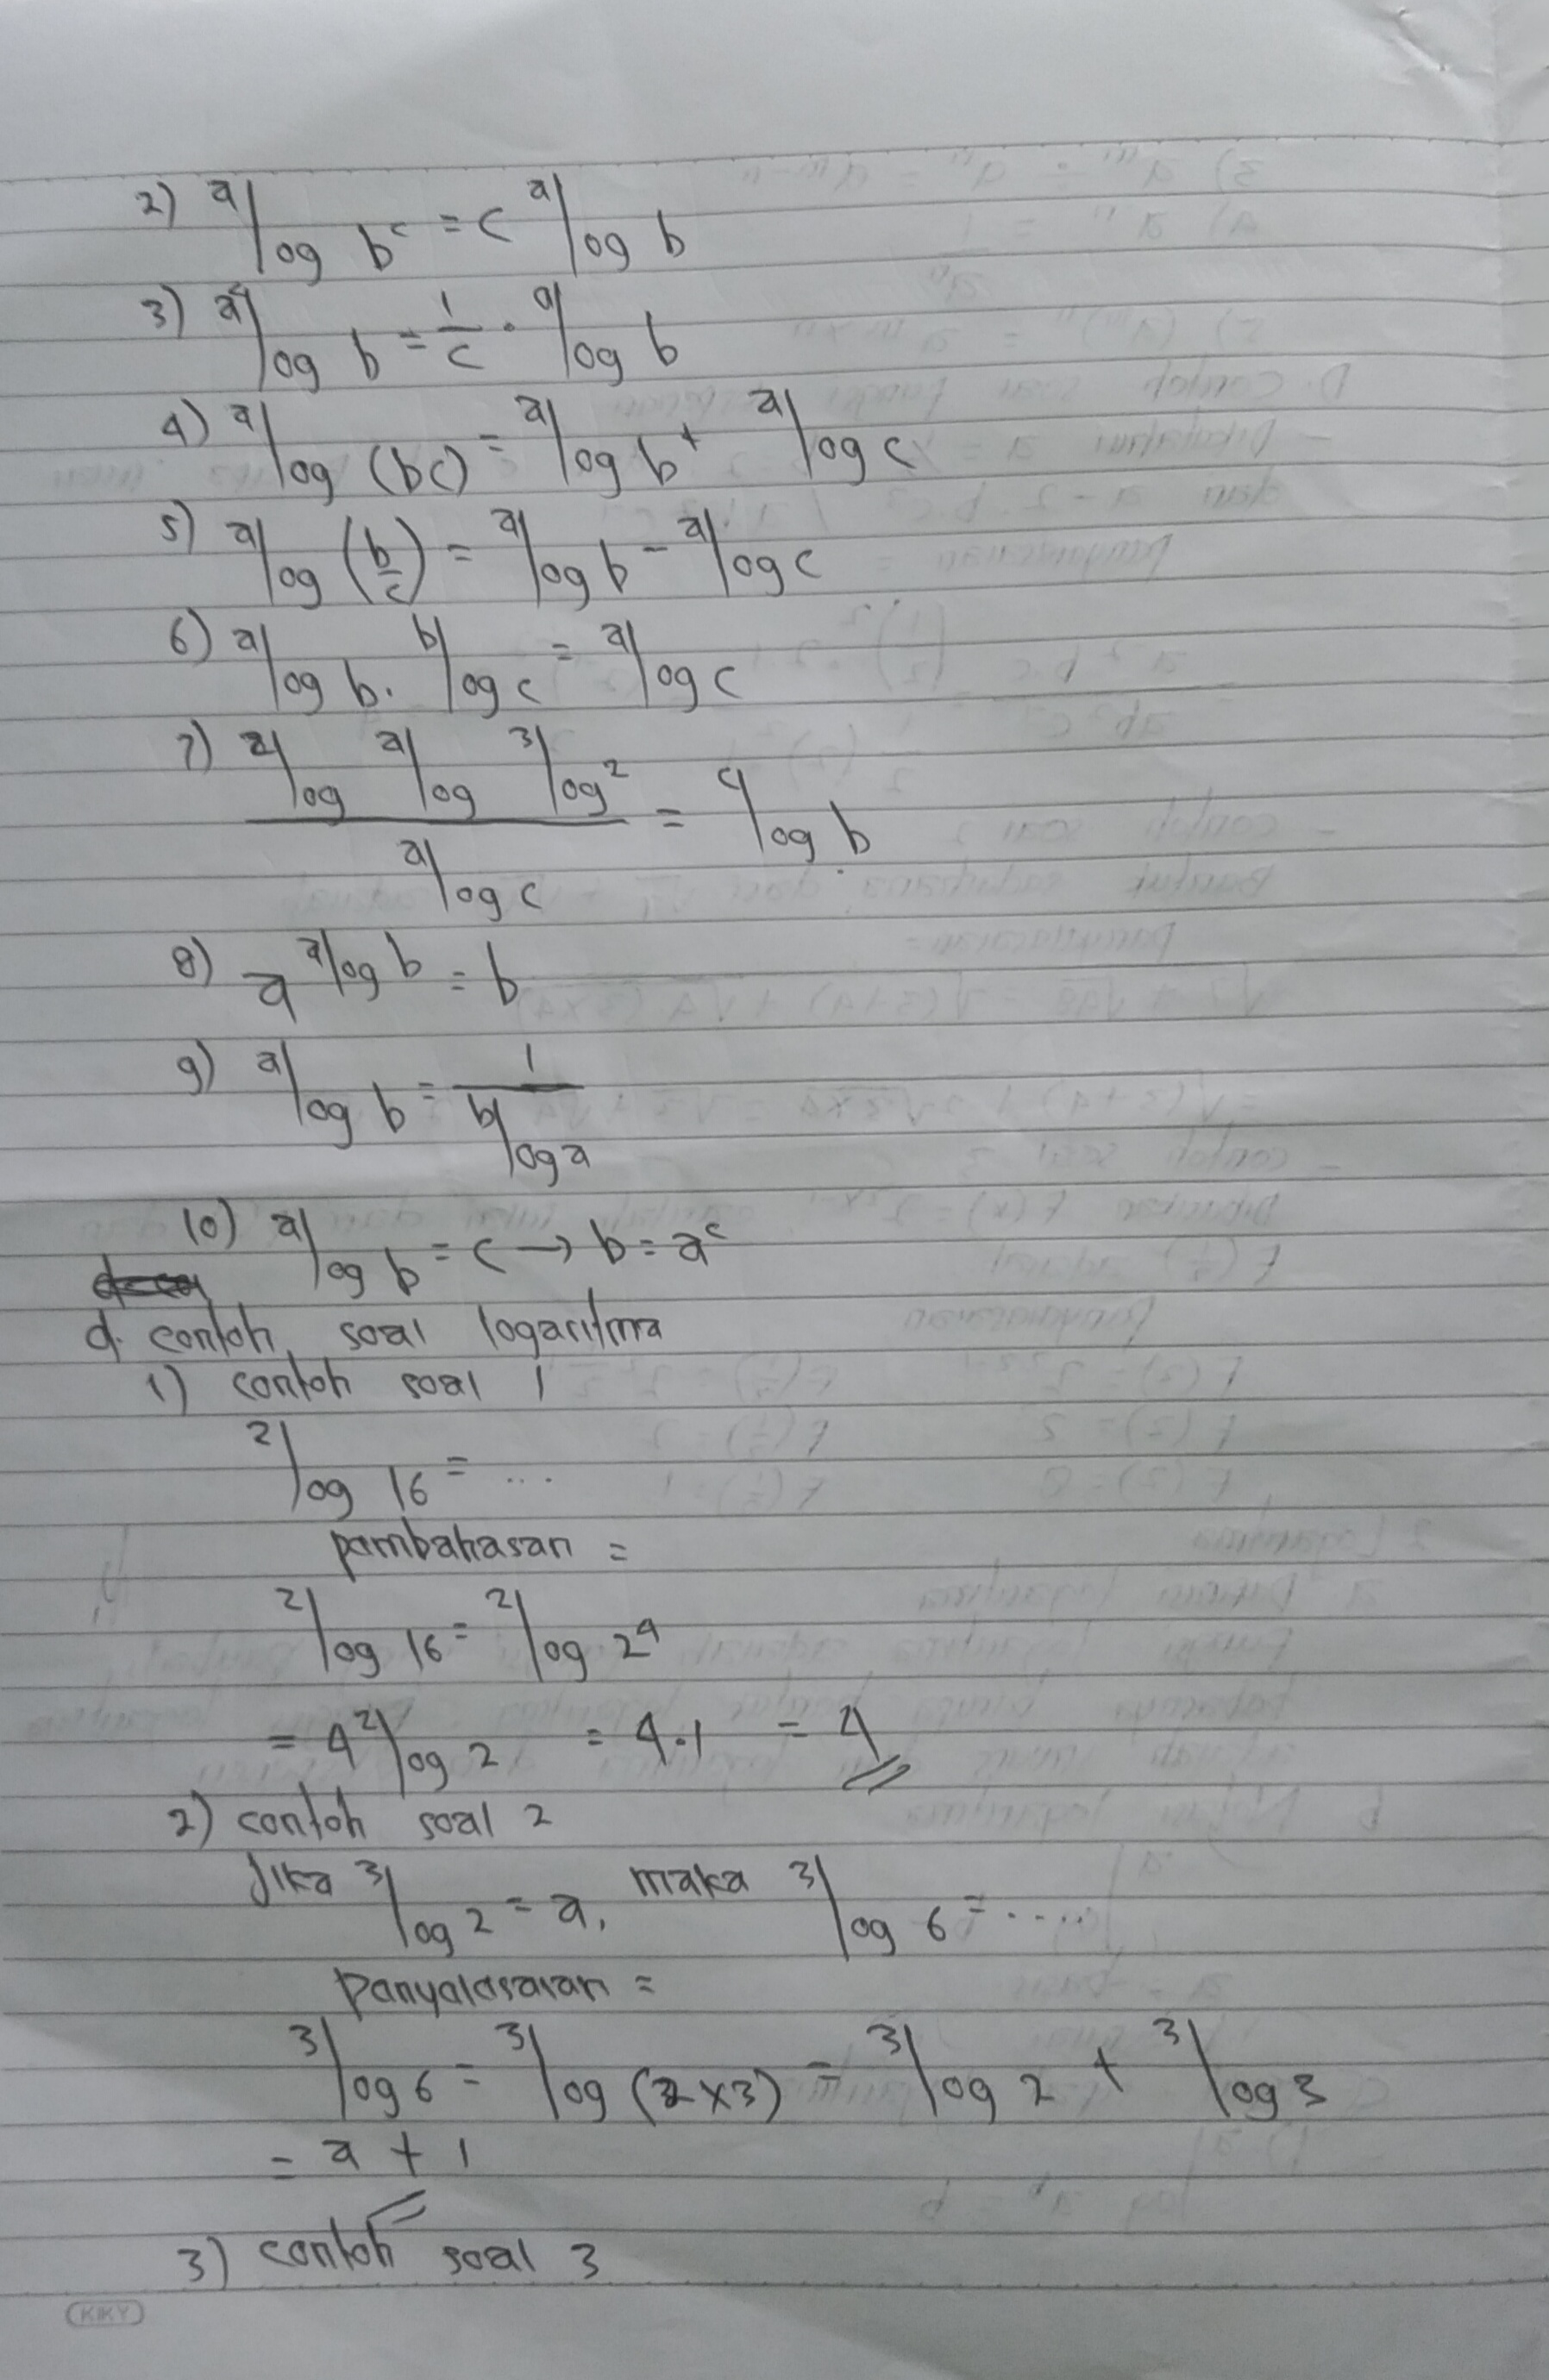 2) ᵃlog bᶜ = c ᵃlog b
3) ᵃᶜlog b = 1/c · ᵃlog b
4) ᵃlog (bc) = ᵃlog b + ᵃlog c
5) ᵃlog (b/c) = ᵃlog b - ᵃlog c
6) ᵃlog b. ᵇlog c = ᵃlog c
7) ᵃlog ᵃlog ³log² / ᵃlog c = ᶜlog b
8) a^(ᵃlog b) = b
9) ᵃlog b = 1 / ᵇlog a
10) ᵃlog b = c → b = aᶜ
d. contoh soal logaritma
1) contoh soal 1
²log 16 = ...
pembahasan =
²log 16 = ²log 2⁴
= 4 ²log 2 = 4.1 = 4
2) contoh soal 2
Jika ³log 2 = a, maka ³log 6 = .....
Penyelesaian =
³log 6 = ³log (2x3) = ³log 2 + ³log 3
= a + 1
3) contoh soal 3
KIKY